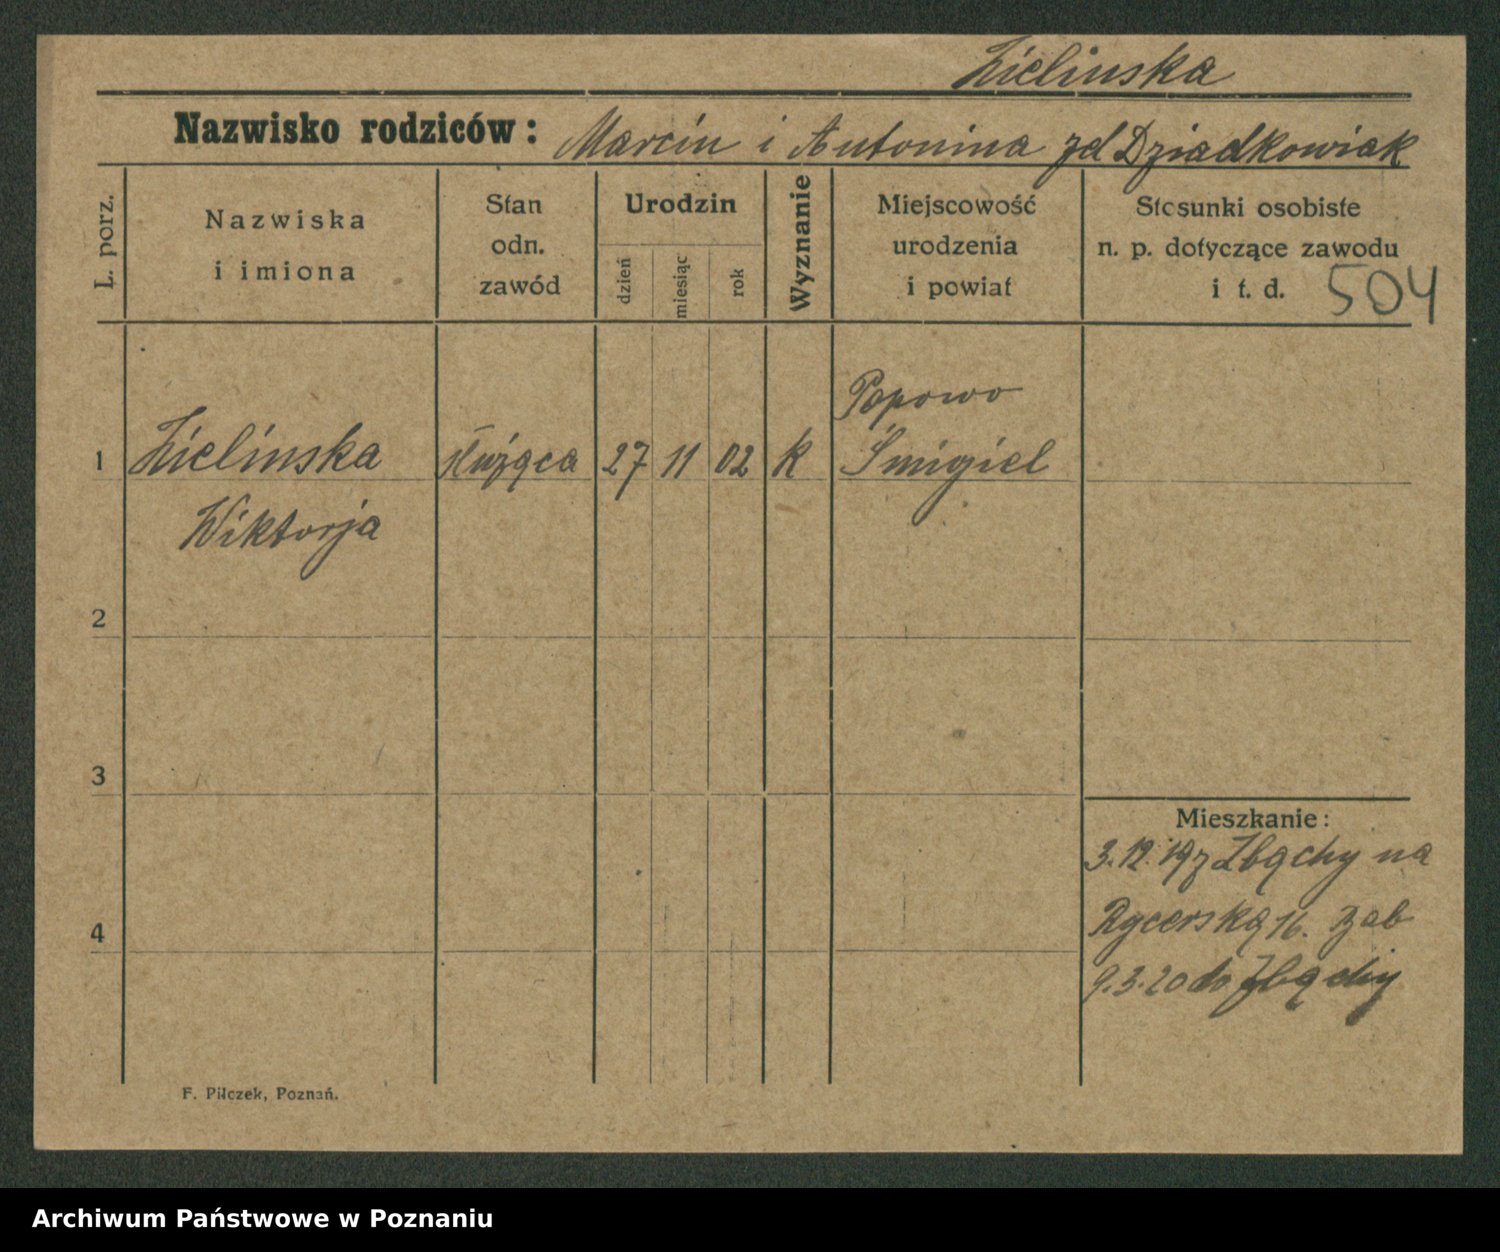 Zielinska
Nazwisko rodziców: Marcin i Antonina zd Dziadkowiak
L. porz.
Nazwiska
i imiona
Stan
odn.
zawód
Urodzin
dzień
miesiąc
rok
Wyznanie
Miejscowość
urodzenia
i powiat
Stosunki osobiste
n. p. dotyczące zawodu
i t. d. 504
Popowo
1 Zielinska służąca 27 11 02 k Śmigiel
Wiktorja
2
3
Mieszkanie:
3.12.19 z Zbąchy na
4 Rycerską 16.
9.3.20 do Zbąchy
F. Pilczek, Poznań.
Archiwum Państwowe w Poznaniu